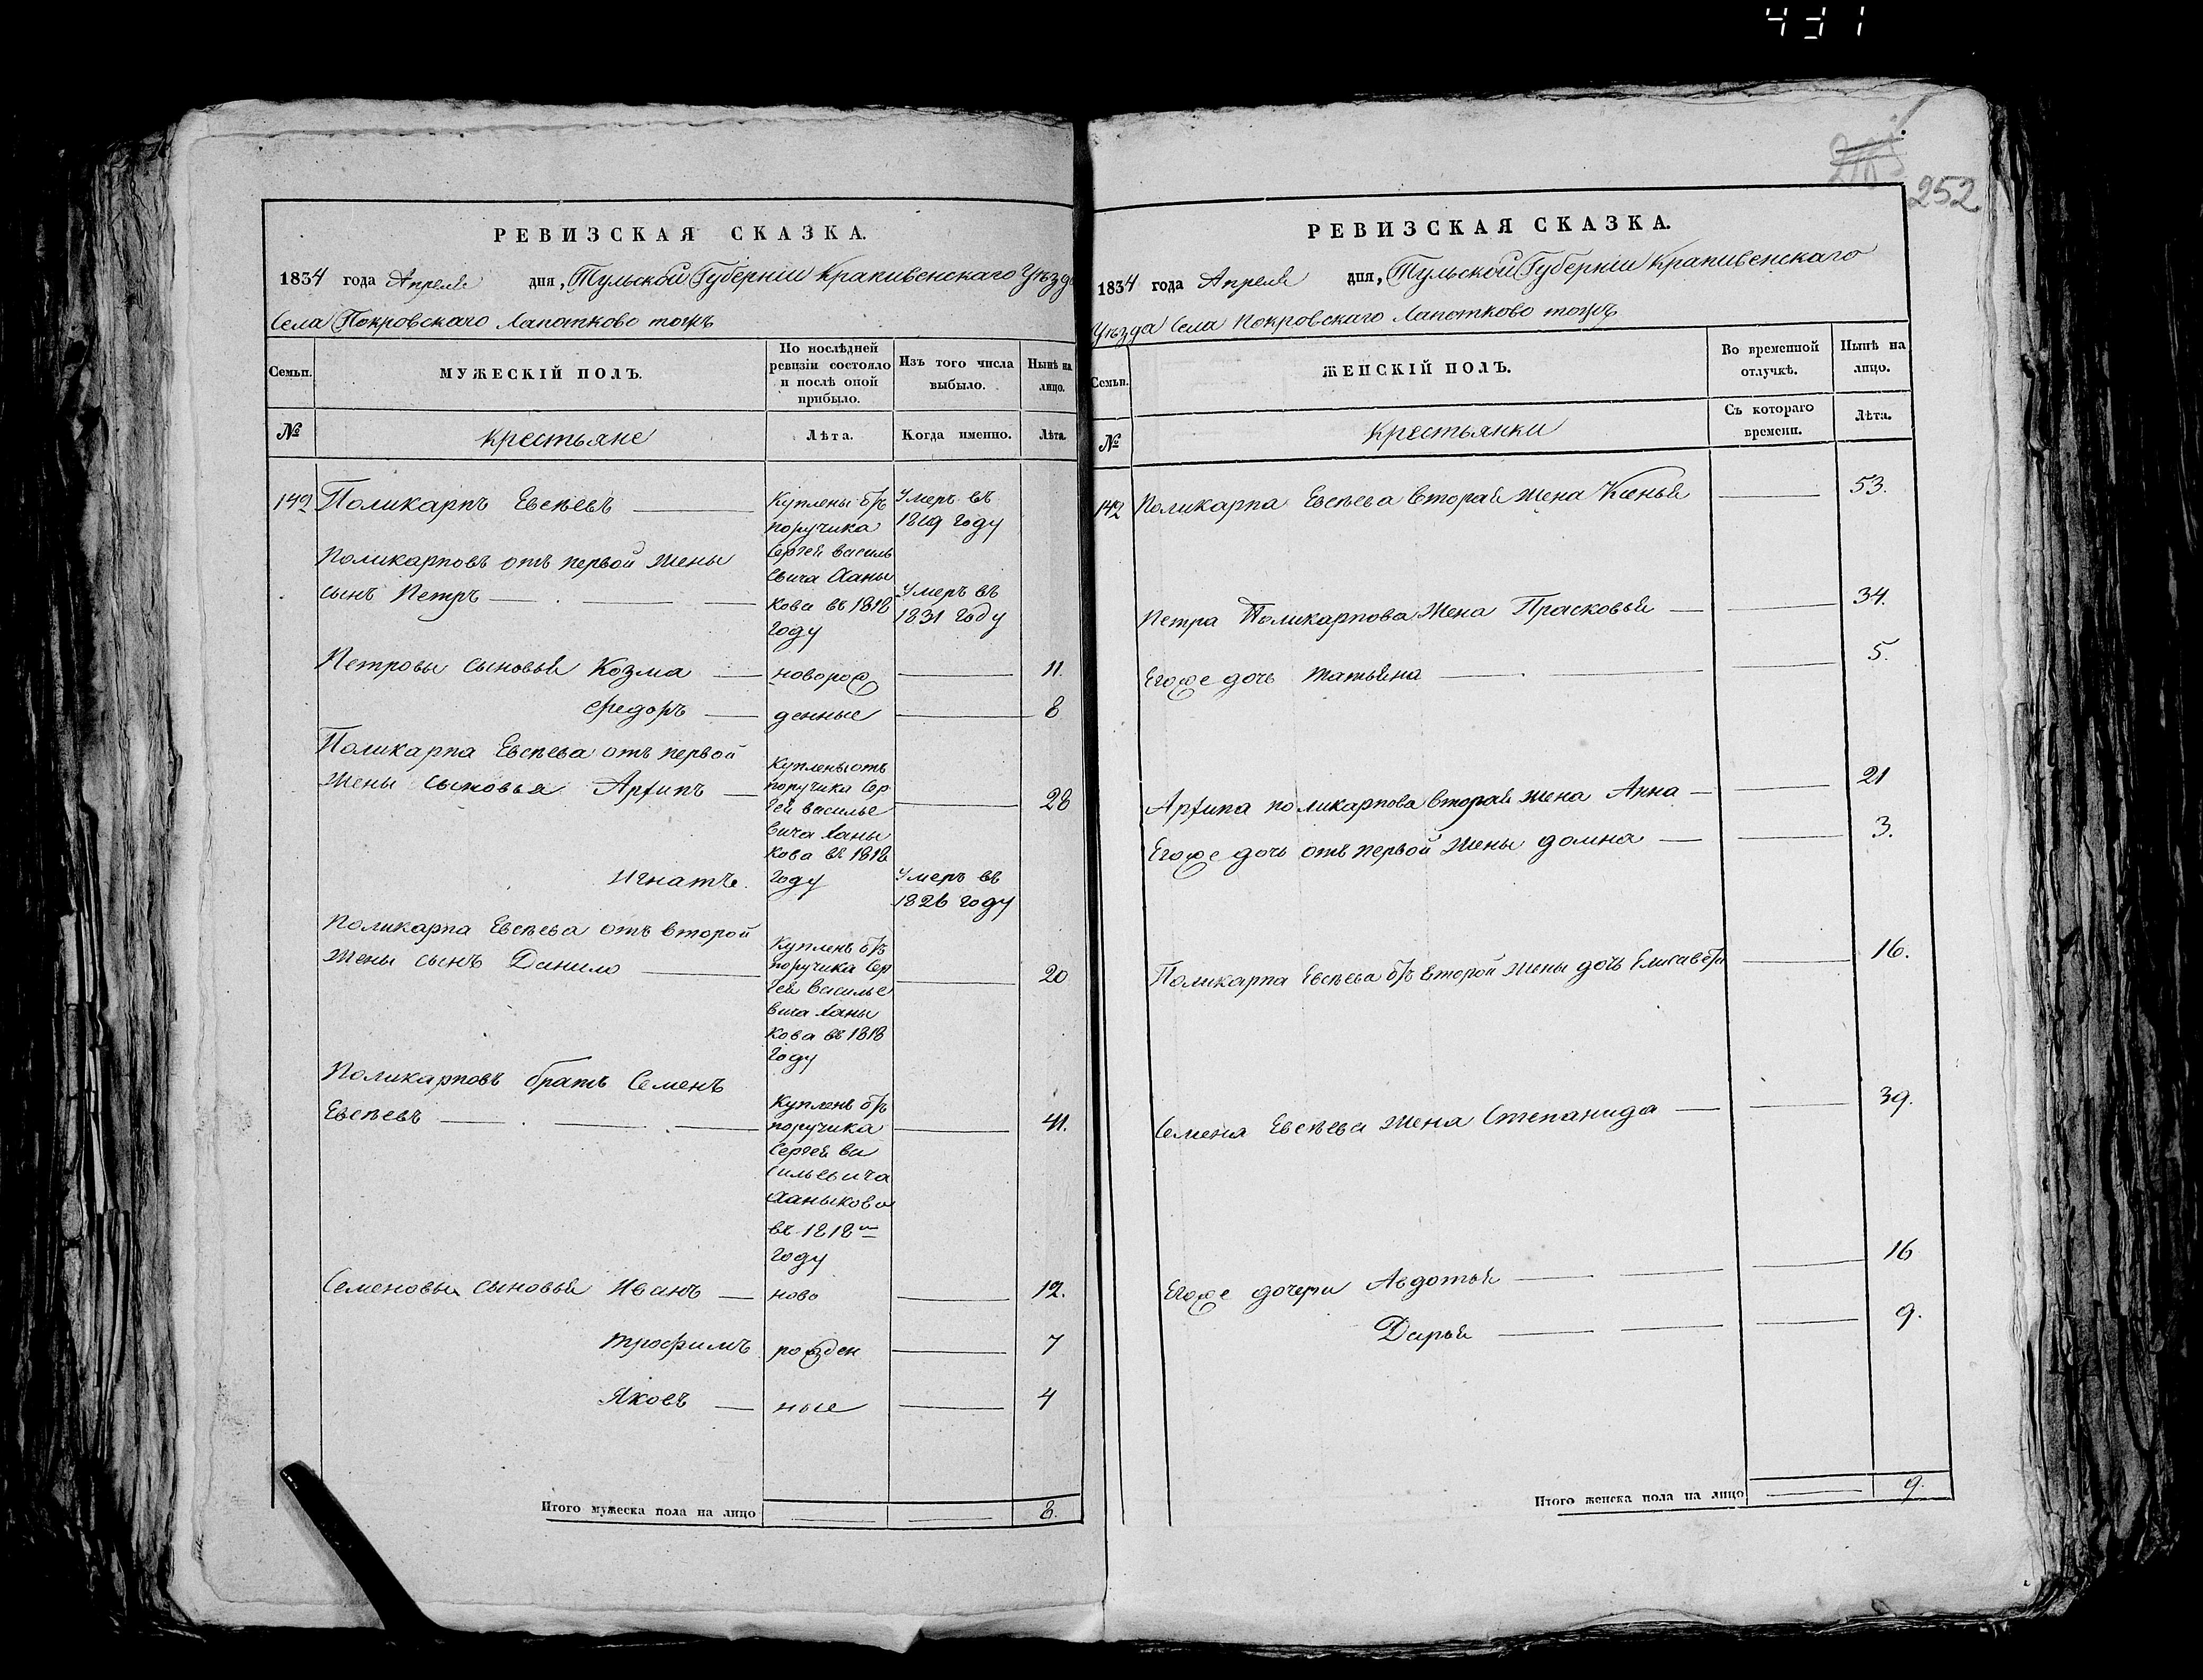 431
252
РЕВИЗСКАЯ СКАЗКА.
1834 года Апреля дня, Тульской Губерніи Крапивенскаго Уѣзда
Села Покровскаго Лапотково тожъ
Семьи.
МУЖЕСКІЙ ПОЛЪ.
По послѣдней ревизіи состояло и послѣ оной прибыло.
Изъ того числа выбыло.
Нынѣ на лицо.
№
Крестьяне
Лѣта.
Когда именно.
Лѣта.
142 Поликарпъ Евсѣевъ
Куплены отъ
поручика
Сергея Василь
евича Ханы
кова въ 1818
году
Умеръ въ
1819 году
Поликарповъ отъ первой жены
сынъ Петръ
Умеръ въ
1831 году
Петровы сыновья Козма новорож 11.
Федоръ денные 8
Поликарпа Евсѣева отъ первой
жены сыновья Архипъ 28
Куплены отъ
поручика Сер
гея Василье
вича Ханы
кова въ 1818
году
Игнатъ.
Умеръ въ
1826 году
Поликарпа Евсѣева отъ второй
жены сынъ Данило 20
Купленъ отъ
поручика Сер
гея Василье
вича Ханы
кова въ 1818
году
Поликарповъ братъ Семенъ
Евсѣевъ 41.
Купленъ отъ
поручика
Сергея Ва
сильевича
Ханыкова
въ 1818м
году
Семеновы сыновья Иванъ ново 12.
Трофимъ рожден 7
Яковъ ные 4
Итого мужеска пола на лицо 8.
РЕВИЗСКАЯ СКАЗКА.
1834 года Апреля дня, Тульской Губерніи Крапивенскаго
Уѣзда Села Покровскаго Лапотково тожъ
Семьи.
ЖЕНСКІЙ ПОЛЪ.
Во временной отлучкѣ.
Нынѣ на лицо.
№
Крестьянки
Съ котораго времени.
Лѣта.
142 Поликарпа Евсѣева вторая жена Ксенья 53.
Петра Поликарпова жена Прасковья 34.
Егоже дочь Татьяна 5.
Архипа Поликарпова вторая жена Анна 21
Егоже дочь отъ первой жены Домна 3.
Поликарпа Евсѣева отъ второй жены дочь Елисавета 16.
Семена Евсѣева жена Степанида 39.
Егоже дочери Авдотья 16
Дарья 9.
Итого женска пола на лицо 9.